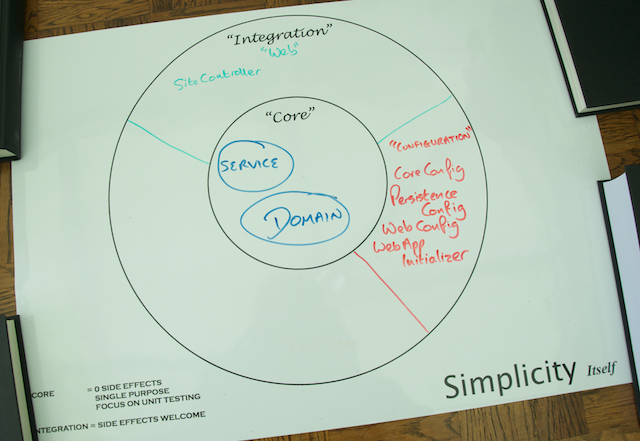 "Integration"
"Web"
SiteController
"Core"
SERVICE
DOMAIN
"CONFIGURATION"
CoreConfig
Persistence
Config
WebConfig
WebApp
Initializer
CORE = 0 SIDE EFFECTS
SINGLE PURPOSE
FOCUS ON UNIT TESTING
INTEGRATION = SIDE EFFECTS WELCOME
Simplicity Itself